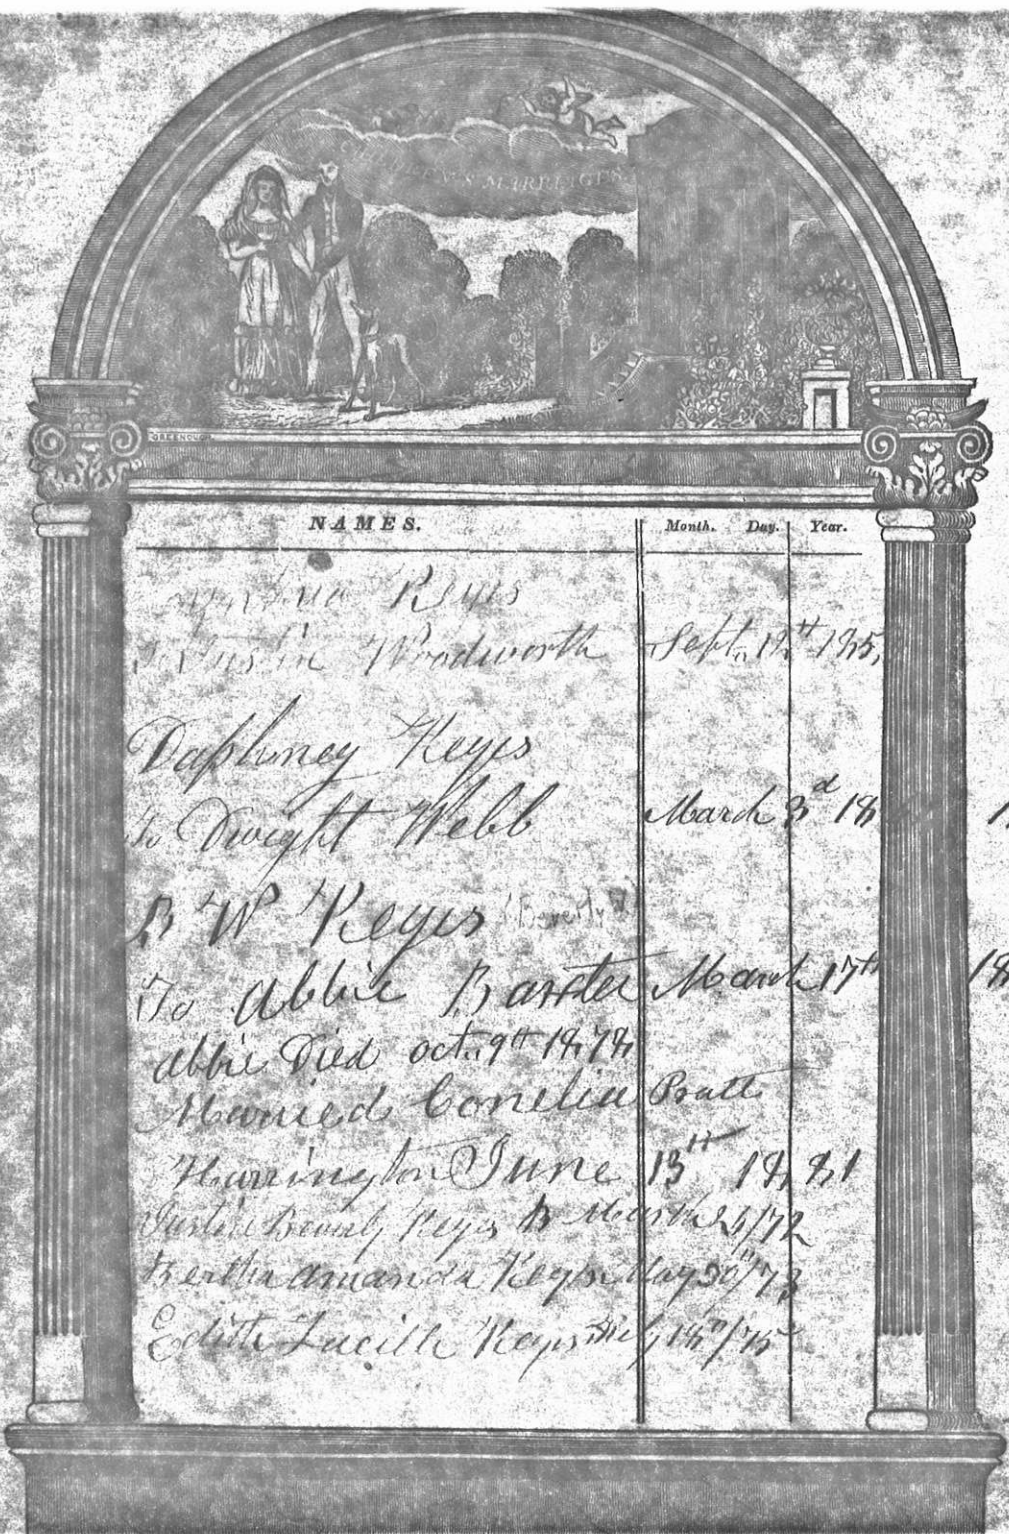 CHILDREN'S MARRIAGES
GREENOUGH
NAMES. Month. Day. Year.
Keyes
to Justin Woodworth Sept. 12th 185
Daphney Keyes
to Dwight Webb March 3d 18
B W Keyes (Beverly W.)
To Abbie Baxter March 17th 18
Abbie Died oct. 9th 1878
Married Conelia Pratt
Harrington June 13th 1881
Justin Beverly Keyes B March /72
Bertha Amanda Keyes May 30th/73
Edith Lucille Keyes 18th/75